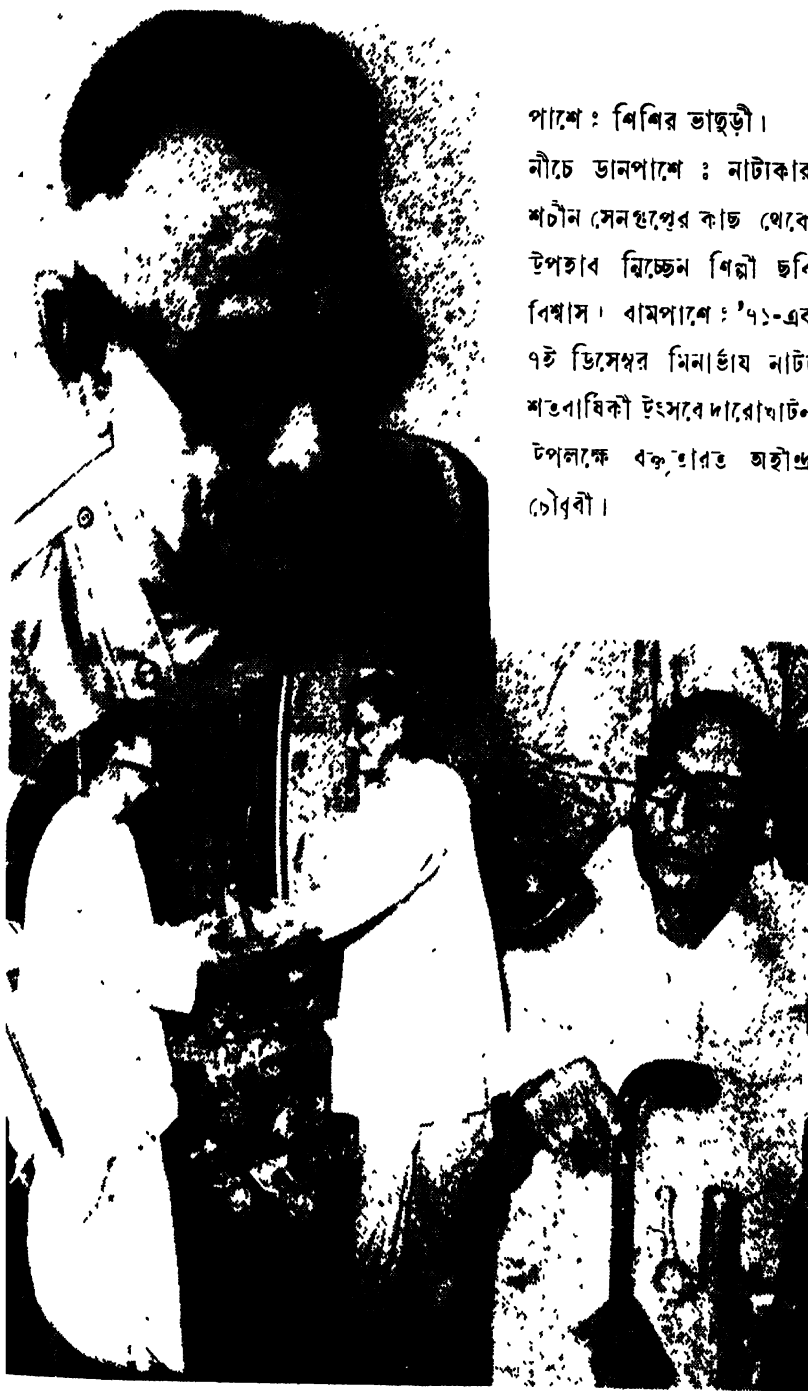 পাশে : শিশির ভাদুড়ী।
নীচে ডানপাশে : নাট্যকার
শচীন সেনগুপ্তের কাছ থেকে
উপহাব নিচ্ছেন শিল্পী ছবি
বিশ্বাস। বামপাশে : ’৭১-এব
৭ই ডিসেম্বর মিনার্ভায নাট্য
শতবার্ষিকী উৎসবে দ্বারোদ্ঘাটন
উপলক্ষে বক্তৃতারত অহীন্দ্র
চৌধুবী।